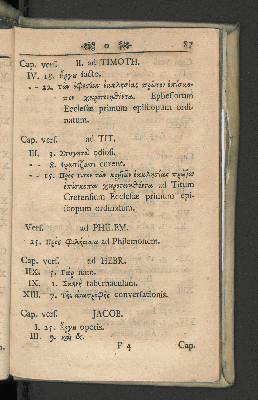 87
Cap. vers. II. ad TIMOTH.
IV. 18. ἔργα facto.
-- 22. τῶν ἐφεσίων ἐκκλησίας πρῶτον ἐπίσκο-
πον χειροτονηθέντα. Ephesiorum
Ecclesiæ primum episcopum ordi-
natum.
Cap. vers. ad TIT.
III. 3. Στυγητοὶ odiosi.
-- 8. φροντίζωσι curent.
-- 15. Προς τιτον τῶν κρητῶν ἐκκλησίας πρῶτον
ἐπίσκοπον χειροτονηθέντα ad Titum
Cretensium Ecclesiæ primum epi-
scopum ordinatum.
Vers. ad PHILEM.
25. Προς φιλήμονα ad Philemonem.
Cap. vers. ad HEBR.
IIX. 5. Γὰρ nam.
IX. 1. Σκηνὴ tabernaculum.
XIII. 7. Τῆς ἀναστροφῆς conversationis.
Cap. vers. JACOB.
I. 25. Ἔργου operis.
III. 9. καὶ &c.
F 4 Cap.